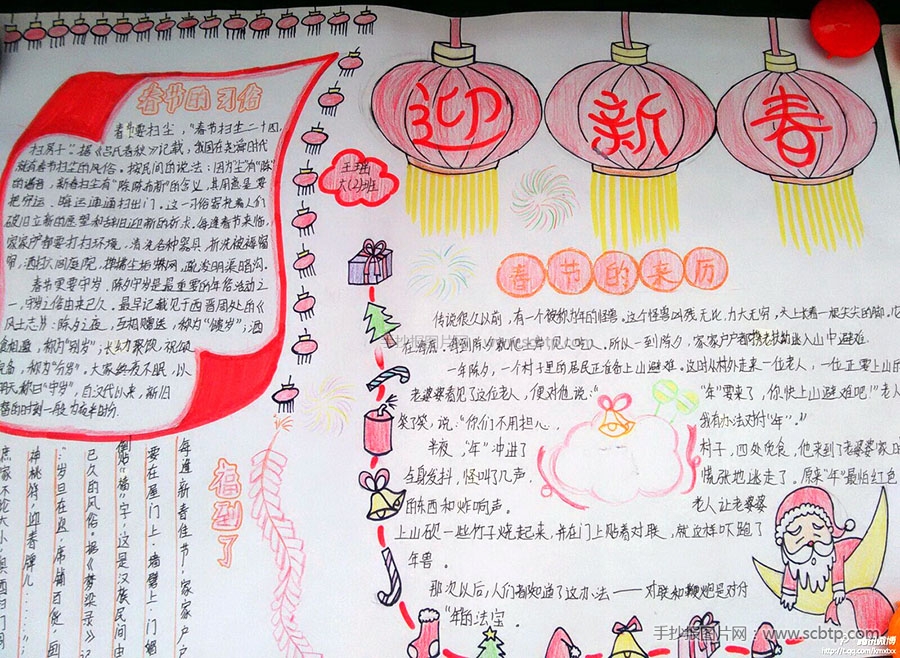 迎新春
春节的习俗
春节要扫尘，“春节扫尘二十四，
扫房子”。据《吕氏春秋》记载，我国在尧舜时代
就有春节扫尘的风俗。按民间的说法：因“尘”与“陈”
的谐音，新春扫尘有“除陈布新”的含义，其用意是要
把穷运、晦运通通扫出门。这一习俗寄托着人们
破旧立新的愿望和辞旧迎新的祈求。每逢春节来临，
家家户都要打扫环境，清洗各种器具，拆洗被褥窗
帘，洒扫六闾庭院，掸拂尘垢蛛网，疏浚明渠暗沟。
春节更要守岁，除夕守岁是最重要的年俗活动之
一，守岁之俗由来已久。最早记载见于西晋周处的《
风土志》：除夕之夜，互相赠送，称为“馈岁”；酒
食相邀，称为“别岁”；长幼聚饮，祝颂
完备，称为“分岁”。大家终夜不眠，以
待天明，称曰“守岁”，自汉代以来，新旧
王瑶
六(2)班
春节的来历
传说很久以前，有一个被称为年的怪兽。这个怪兽凶残无比，力大无穷，头上长着一根尖尖的角，
在海底。每到除夕就爬出岸见人吃人。所以一到除夕，家家户户都携老扶幼逃入山中避难。
一年除夕，一个村子里的居民正准备上山避难。这时从村外走来一位老人，一位正要上山的
老婆婆看见了这位老人，便对他说：“
“年”要来了，你快上山避难吧！”老人
笑了笑，说：“你们不用担心，
我有办法对付“年”。”
半夜，“年”冲进了
村子，四处觅食，他来到了老婆婆家
全身发抖，怪叫了几声，
慌张地逃走了。原来“年”最怕红色
的东西和炸响声。
老人让老婆婆
上山砍一些竹子烧起来，并在门上贴着对联，就这样吓跑了
年兽。
那次以后，人们都知道了这办法——对联和鞭炮是对付
“年”的法宝。
福到了
每逢新春佳节，家家户
要在屋门上、墙壁上、门楣
倒贴“福”字，这是汉族民间由
已久的风俗。据《梦粱录》记
：“岁旦在迩，席铺百货，画
神桃符，迎春牌儿……”；
庶家不论大小，
手抄报图片网：www.scbtp.com
腾讯微博
http://t.qq.com/kmxtxx